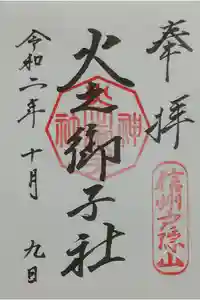 奉拝
信州戸隠山
火之御子社
令和二年十月九日